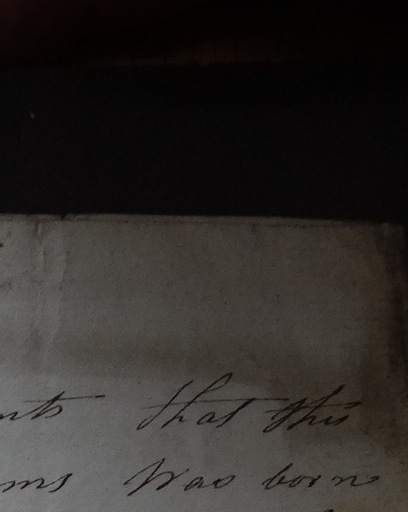 nts that this
ms Was born